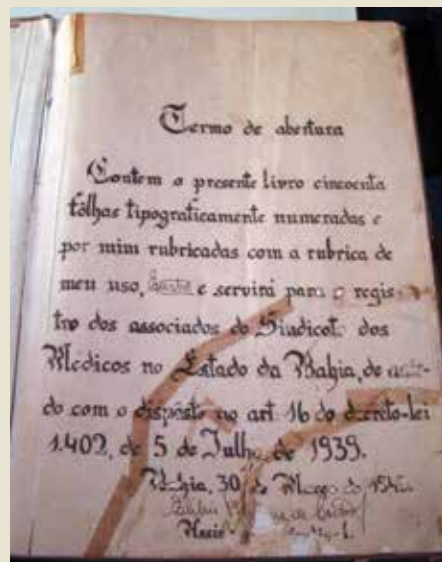 Termo de abertura
Contem o presente livro cincoenta
fôlhas tipograficamente numeradas e
por mim rubricadas com a rubrica de
meu uso, e servirá para o regis-
tro dos associados do Sindicato dos
Médicos no Estado da Bahia, de
do com o disposto no art. 16 do decreto-lei
1.402, de 5 de Julho de 1939.
Bahia, 30 de Março de